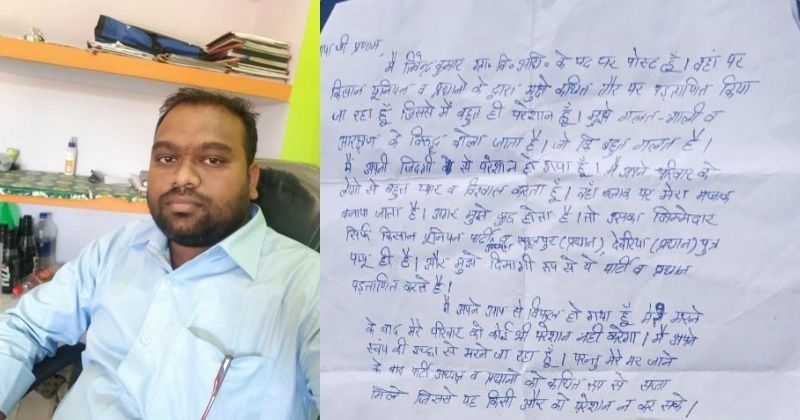 पापा जी प्रणाम,
मै त्रिवेन्द्र कुमार ग्रा० वि० अधि० के पद पर पोस्ट हूँ। वहां पर
किसान यूनियन व प्रधानो के द्वारा मुझे कथित तौर पर प्रड़ताणित किया
जा रहा हूँ, जिससे मैं बहुत ही परेशान हूँ। मुझे गलत-गाली व
आरक्षण के विरूद्ध बोला जाता है। जो कि बहुत गलत है।
मै अपनी जिदगी से परेशान हो गया हूँ। मै अपने परिवार के
लोगो से बहुत प्यार व विश्वास करता हूँ। वहाँ ब्लाक पर मेरा मजाक
बनाया जाता है। अगर मुझे कुछ होता है। तो उसका जिम्मेदार
सिर्फ किसान यूनियन पार्टी अध्यक्ष व (प्रधान), देवरिया (प्रधान) पुत्र
पप्पू ही है। और मुझे दिमागी रूप से ये पार्टी व प्रधान
पड़ताणित करते है।
मै अपने आप से विफल हो गया हूँ मेरे मरने
के बाद मेरे परिवार को कोई भी परेशान नही करेगा। मै अपने
स्वंय की इच्छा से मरने जा रहा हूँ। परन्तु मेरे मर जाने
के बाद पार्टी अध्यक्ष व प्रधानो को कथित रूप से सजा
मिले जिससे यह किसी और को परेशान न कर सके।